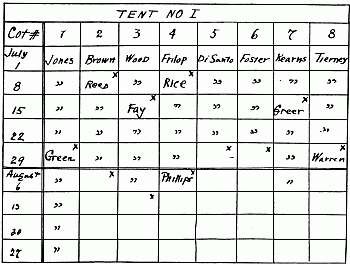 TENT NO I
Cot# 1 2 3 4 5 6 7 8
July 1 Jones Brown Wood Frilop DiSanto Foster Kearns Tierney
8 " Reed x " Rice x " " " "
15 " " Fay x " " " Greer x "
22 " " " " " " " "
29 Green x " " " x - x " Warren x
August 6 " x " Phillips x "
13 " x
20 "
27 "